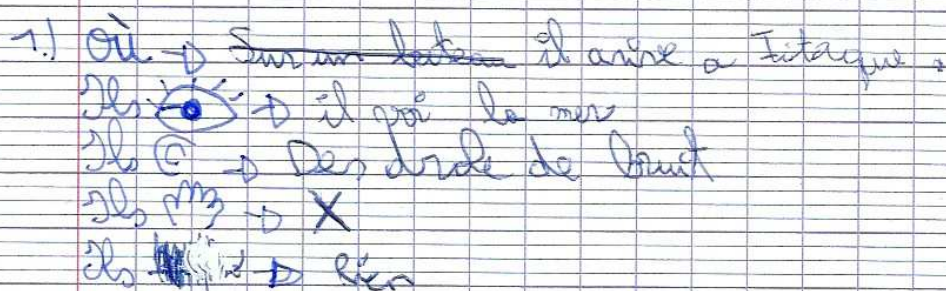 1.) Où → Sur un bateau il arive a Itaque.
Ils → il voi la mer
Ils → Des drole de bruit
Ils → X
Ils → Rien